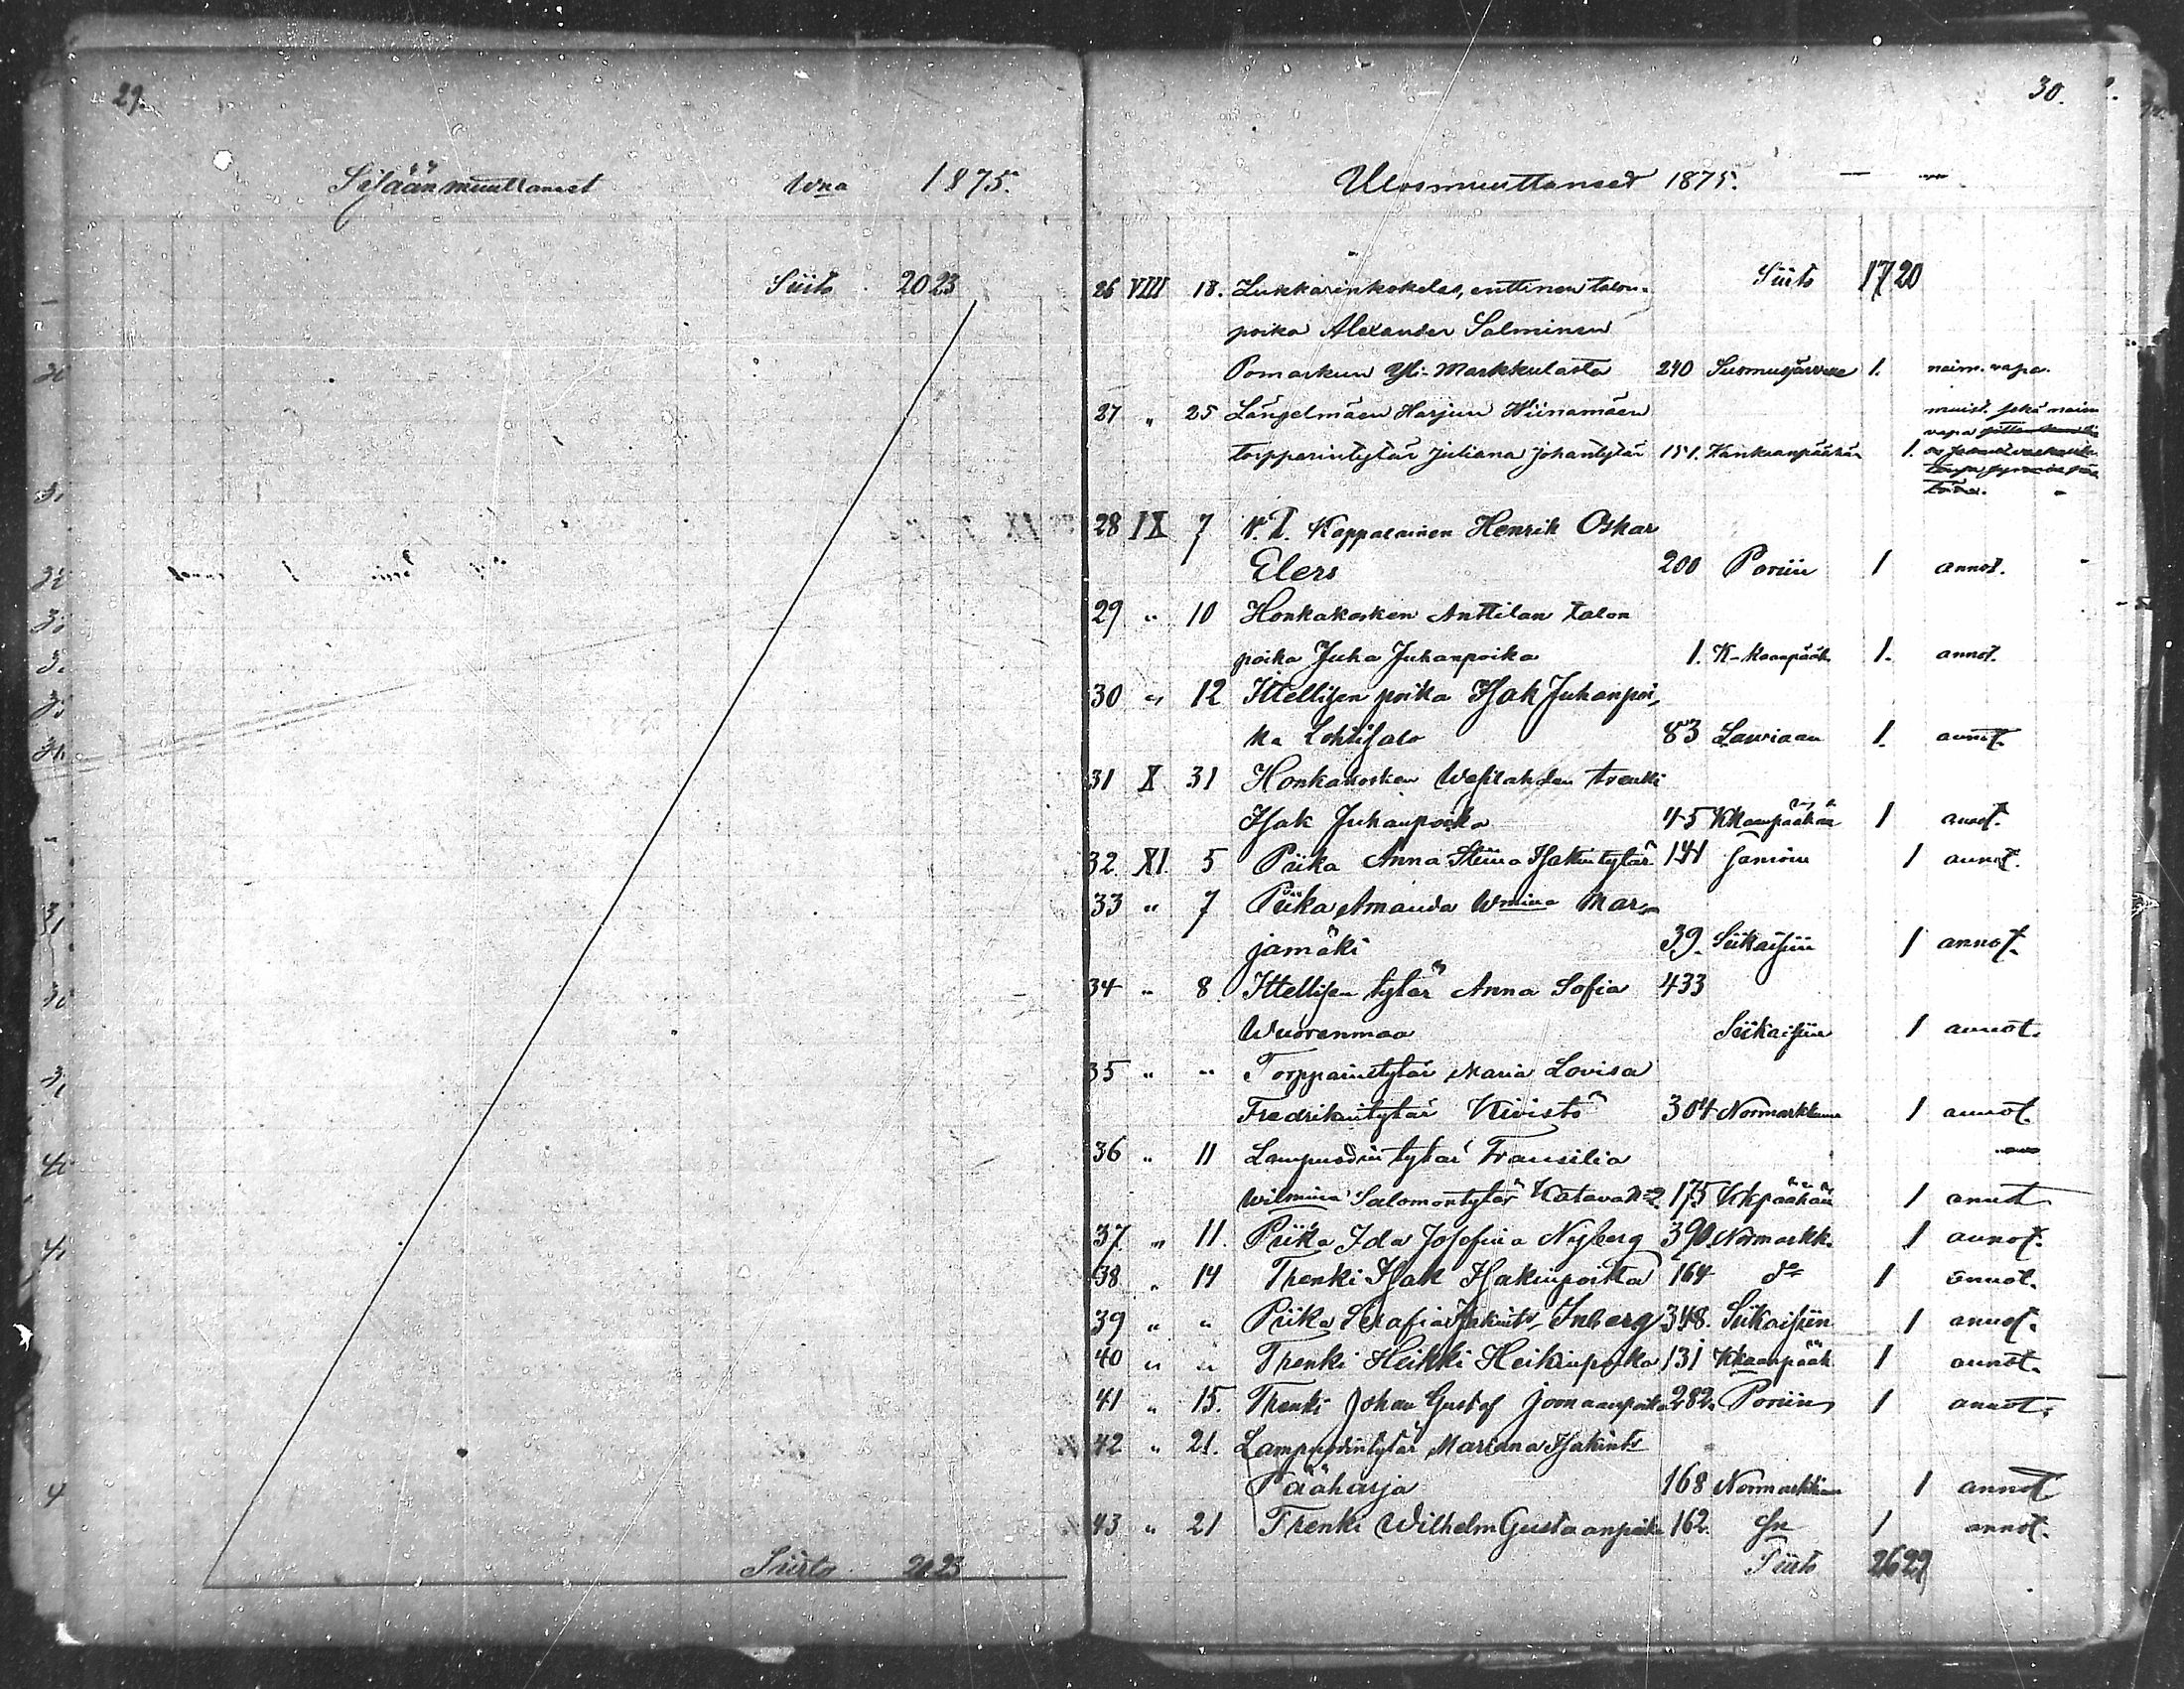 29.
Sisään muuttaneet Wna 1875.
Siirto 20 23
Siirto 20 23
30.
Ulosmuuttaneet 1875.
26 VIII 18. Lukkarinkokelas, entinen talon- Siirto 17 20
poika Alexander Salminen
Pomarkun Yli-Markkulasta 240 Suomusjärvee 1. naim. vapa.
27 " 25 Längelmäen Harjun Wiinamäen muist. sekä naim
vapa
torpparintytär Juliana Johantytär 151. Kankaanpäähän 1.
28 IX 7 V. T. Kappalainen Henrik Oskar
Elers 200 Poriin 1 annot.
29 " 10 Honkakosken Anttilan talon
poika Juha Juhanpoika 1. K-kaanpääh. 1. annot.
30 " 12 Ittellisen poika Isak Juhanpoi-
ka Lehtisalo 83 Lawiaan 1. annot.
31 X 31 Honkakosken Wesilahden trenki
Isak Juhanpoika 45 Kkaanpäähän 1 annot.
32 XI. 5 Piika Anna Stiina Isakintytär 141 1 annot.
33 " 7 Piika Amanda Wmiina Mar-
jamäki 39. Siikaisiin 1 annot.
34 " 8 Ittellisen tytär Anna Sofia 433
Wuorenmaa Siikaisiin 1 annot.
35 " " Torpparintytär Maria Lovisa
Fredrikintytär Kivistö 304 Normarkkuun 1 annot.
36 " 11 Lampuodin tytär Fransilia
Wilmiina Salomontytär Katava N:o 2. 175 Kkpäähän 1 annot
37 " 11. Piika Ida Josofiina Nyberg 390. Normarkk. 1 annot.
38 " 14 Thenki Isak Isakinpoika 164 do 1 annot.
39 " " Piika Serafia Isakints Inberg 348. Siikaisiin 1 annot.
40 " " Thenki Heikki Heikinpoika 131 Kkaanpääh 1 annot.
41 " 15. Thenki Johan Gustaf Joonaanpoika 282. Poriin 1 annot.
42 " 21. Lampuodintytär Mariana Isakints
Pääharja 168 Normarkkuun 1 annot
43 " 21 Thenki Wilhelm Gustaanpoika 162. 1 annot.
Siirto 26 29